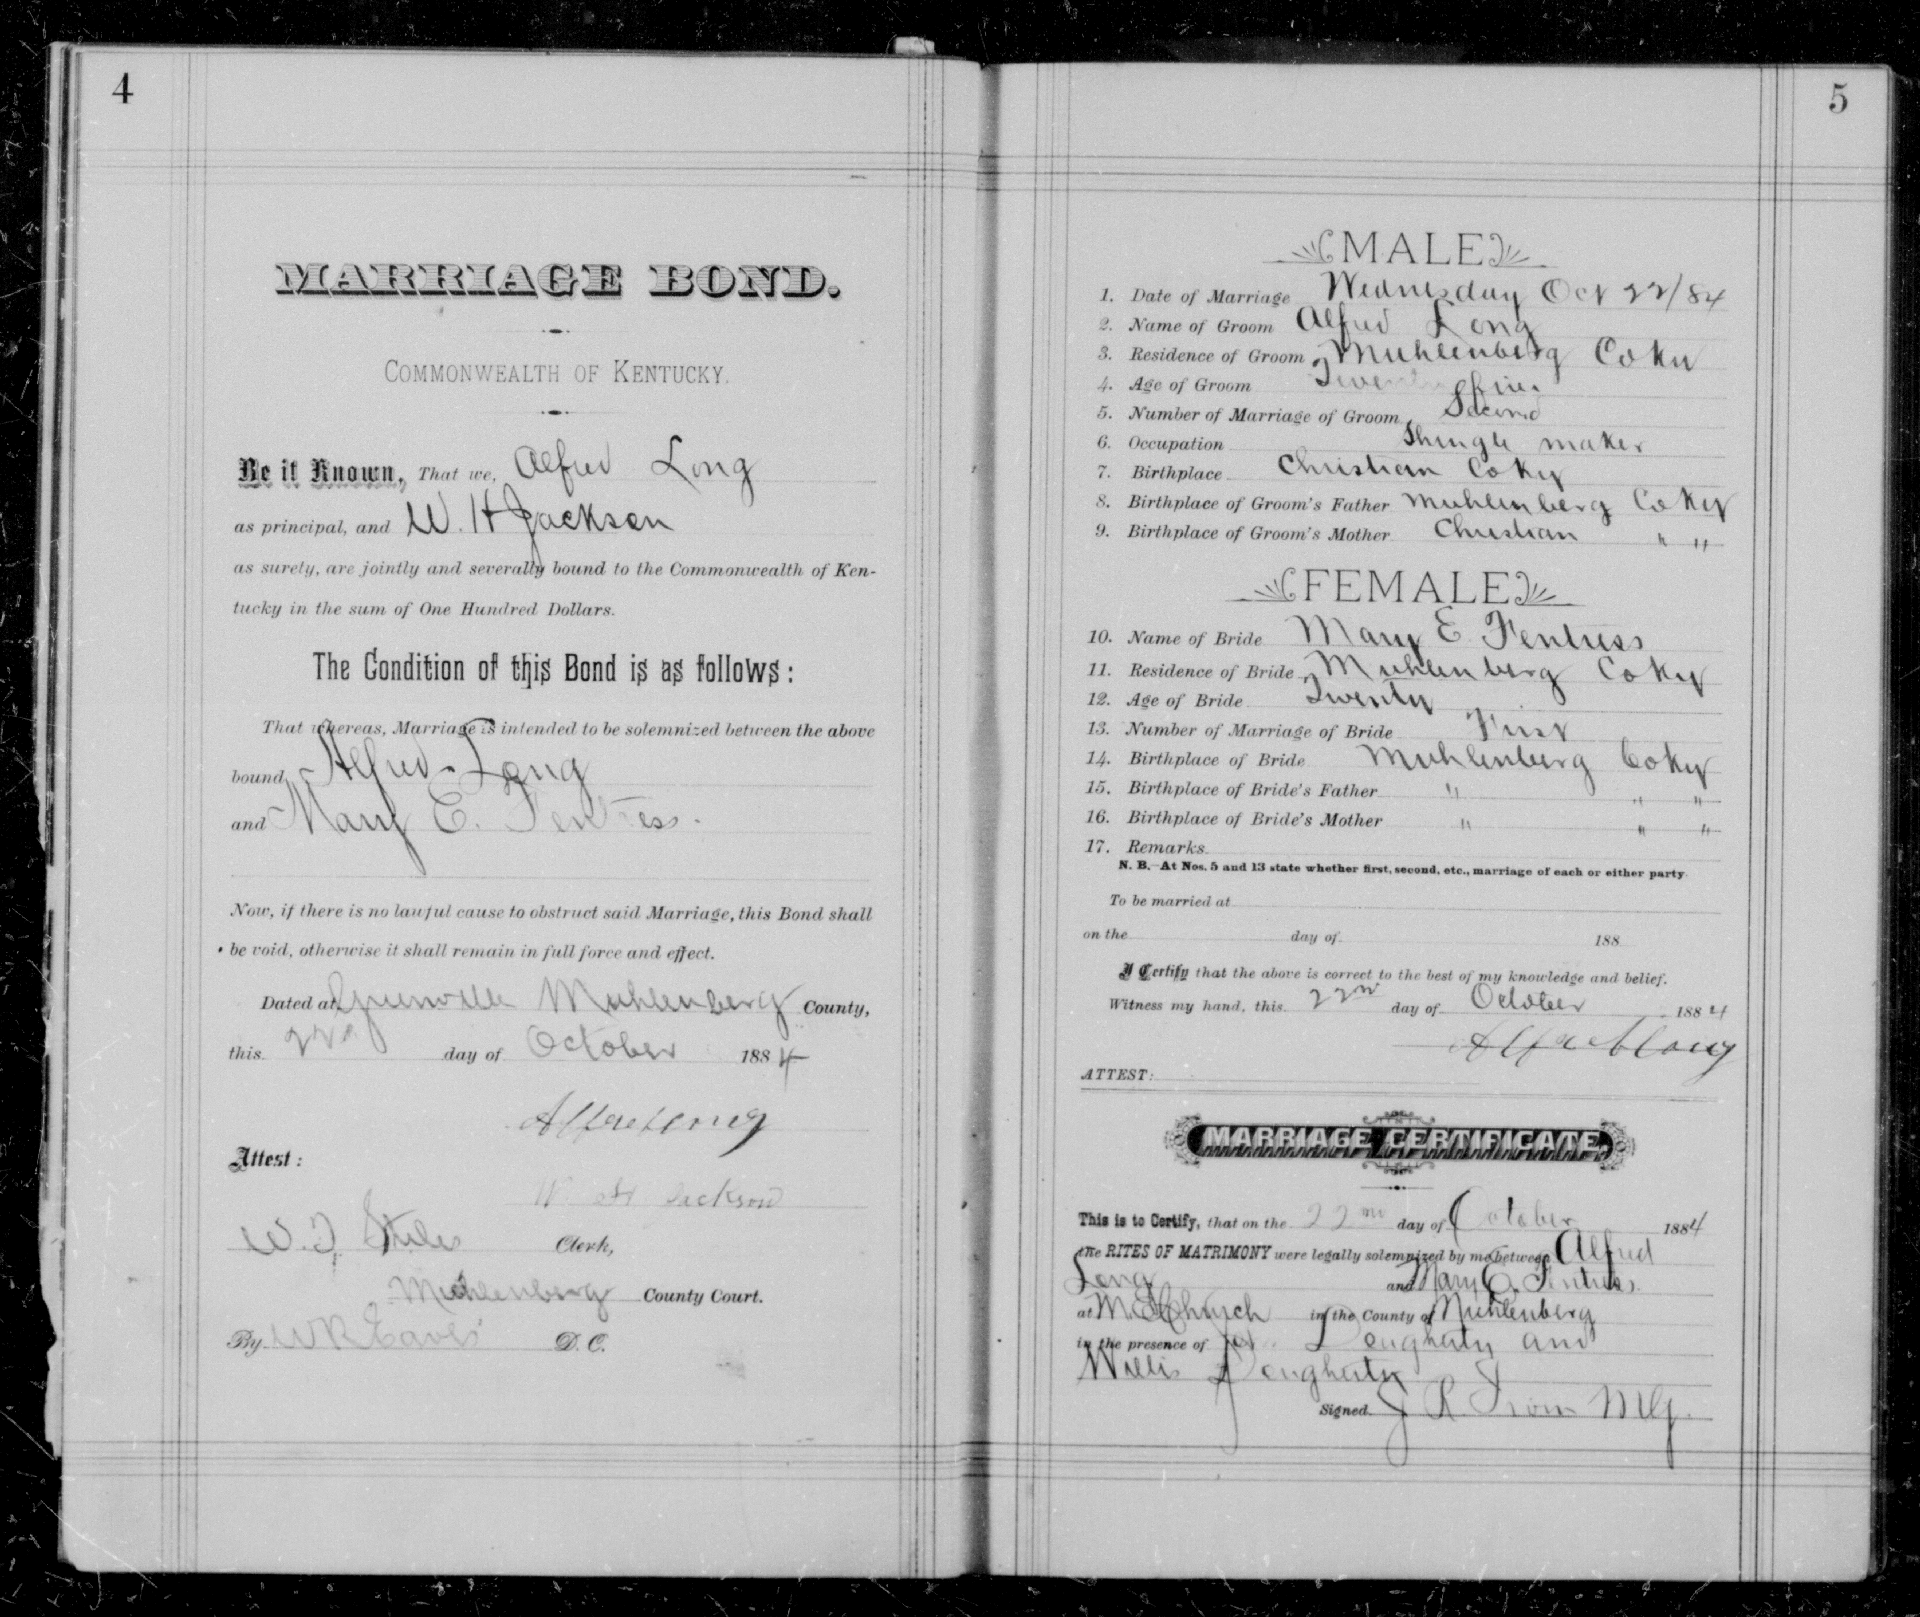 4
MARRIAGE BOND.
COMMONWEALTH OF KENTUCKY.
Be it Known, That we, Alfred Long
as principal, and W. H Jackson
as surety, are jointly and severally bound to the Commonwealth of Ken-
tucky in the sum of One Hundred Dollars.
The Condition of this Bond is as follows:
That whereas, Marriage is intended to be solemnized between the above
bound Alfred Long
and Mary E. Fentress.
Now, if there is no lawful cause to obstruct said Marriage, this Bond shall
be void, otherwise it shall remain in full force and effect.
Dated at Greenville Muhlenberg County,
this 22nd day of October 1884
Alfred Long
Attest:
W. H Jackson
W. T. Stiles Clerk,
Muhlenberg County Court.
By W R Eaves D. C.
5
MALE
1. Date of Marriage Wednesday Oct 22/84
2. Name of Groom Alfred Long
3. Residence of Groom Muhlenberg Co Ky
4. Age of Groom Twenty five
5. Number of Marriage of Groom Second
6. Occupation Shingle maker
7. Birthplace Christian Co Ky
8. Birthplace of Groom's Father Muhlenberg Co Ky
9. Birthplace of Groom's Mother Christian " "
FEMALE
10. Name of Bride Mary E Fentress
11. Residence of Bride Muhlenberg Co Ky
12. Age of Bride Twenty
13. Number of Marriage of Bride First
14. Birthplace of Bride Muhlenberg Co Ky
15. Birthplace of Bride's Father " " "
16. Birthplace of Bride's Mother " " "
17. Remarks
N. B.—At Nos. 5 and 13 state whether first, second, etc., marriage of each or either party
To be married at
on the day of 188
I Certify that the above is correct to the best of my knowledge and belief.
Witness my hand, this 22nd day of October 1884
Alfred Long
ATTEST:
MARRIAGE CERTIFICATE.
This is to Certify, that on the 22nd day of October 1884
the RITES OF MATRIMONY were legally solemnized by me between Alfred
Long and Mary E. Fentress.
at M. E. Church in the County of Muhlenberg
in the presence of Dougherty and
Willis Dougherty
Signed. J R